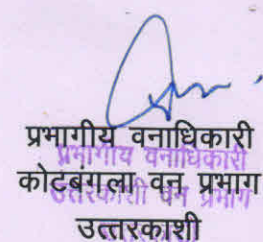 प्रभागीय वनाधिकारी
प्रभागीय वनाधिकारी
कोटबंगला वन प्रभाग
उत्तरकाशी वन प्रभाग
उत्तरकाशी